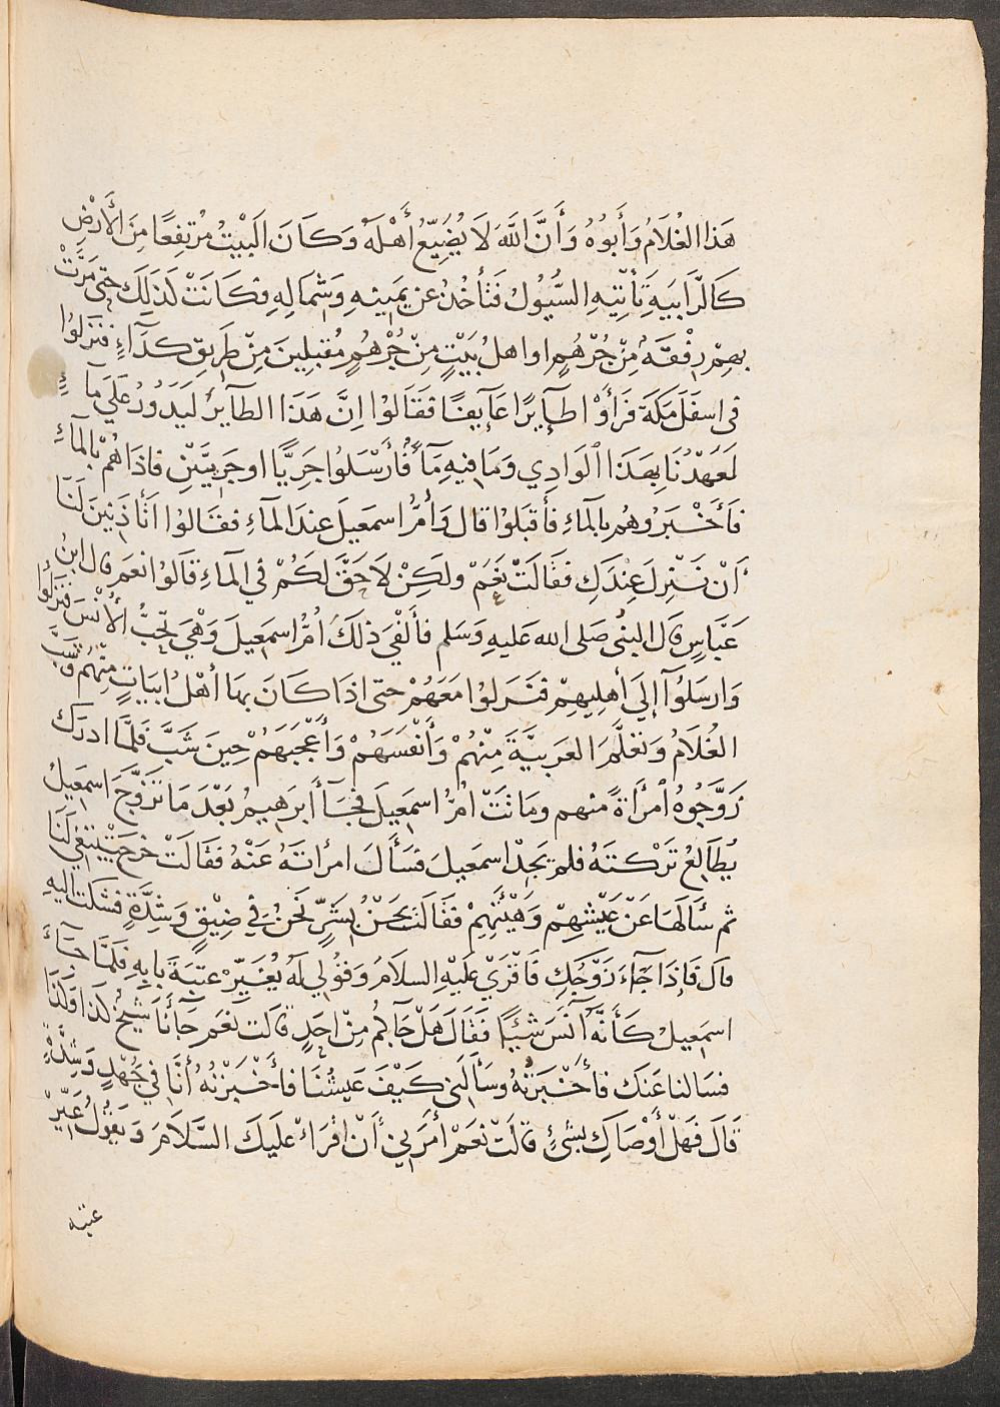 هَذا الغُلَامُ وَأَبُوهُ وَأَنَّ اللَّهَ لَا يُضَيِّعُ أَهْلَهُ وَكَانَ الْبَيْتُ مُرْتَفِعًا مِنَ الأَرْضِ
كَالرَّابِيَةِ تَأْتِيْهِ السُّيُولُ فَتَأْخُذُ عَن يَمِيْنِهِ وَشِمَالِهِ فَكَانَتْ كَذَلِكَ حَتَّى مَرَّتْ
بِهِمْ رِفْقَةٌ مِنْ جُرْهُمٍ او اهلُ بَيْتٍ مِنْ جُرْهُمٍ مُقْبِلِينَ مِنْ طَرِيقِ كَدَآءٍ فَنَزَلُوا
فى اسفَلَ مَكَةَ فَرَأَوْا طآيِرًا عَآيِفًا فَقَالُوا اِنَّ هَذَا الطآيرُ لَيَدُورُ عَلَى مآءٍ
لَعَهْدُنَا بِهَذَا الوَادِي وَمَا فِيهِ مَآءٌ فَأَرْسَلُوا جَرِيًّا او جَرِيَّيْنِ فاذَا هُمْ بِالمآءِ
فَأَخْبَرُوهُم بِالمآءِ فَأَقبَلُوا قال وَأُمُّ اسمَعيلَ عندَ المآءِ فقَالُوا أَتَأذَنِينَ لَنَا
أَنْ نَنْزِلَ عِنْدَكِ فَقَالَتْ نَعَمْ ولَكِنْ لَا حَقَّ لَكُمْ فِي المآءِ قَالُوا نعَم قال ابنُ
عَبَّاسٍ قال النبىُ صَلى الله عَليهِ وَسَلم فألْفَى ذلَكَ أُمُّ اسمَعِيلَ وَهْيَ تُحِبُّ الأُنْسَ فَنَزَلُوا
وَارسَلُوآ إلَى أَهلِيهِمْ فَنَزلُوا مَعَهُمْ حتى اذَا كَانَ بهَا أهْلُ ابيَاتٍ مِنْهُم وَشَبَّ
الغُلَامُ وَتَعَلَّمَ العَرَبيَّةَ مِنْهُمْ وَأَنْفَسَهُمْ وَأَعْجَبَهُمْ حِينَ شَبَّ فَلَمَّا ادرَكَ
زَوَّجُوهُ امْرَأَةً منهم ومَاتَتْ أُمُّ اسمَعِيلَ فَجَآءَ ابرَهِيمُ بَعْدَ مَا تَزَوَّجَ اسمَعِيلُ
يُطَالِعُ تَرْكَتَهُ فلم يَجِدْ اسمعَيلَ فسَأَلَ امرأتَهُ عَنْهُ فَقَالَتْ خرَجَ يَبْتَغِي لَنَا
ثم سَأَلَهَا عَنْ عَيْشِهِمْ وَهَيْئَتِهِمْ فقَالَت نَحْنُ بِشَرٍّ نَحْنُ فِي ضِيْقٍ وَشِدَّةٍ فشَكَت اليهِ
قال فَإِذَا جآءَ زَوْجُكِ فَاقْرَيْ عَلَيْهِ السلَامَ وَقُوْلِي لَهُ يُغَيِّرْ عَتَبَةَ بابِهِ فَلَمَّا جَآءَ
اسمَعِيلُ كَأَنَّهُ آنَسَ شَيْئًا فَقَالَ هَلْ جَآكُم مِنْ احَدٍ قَالَت نعَم جَآنَا شَيْخٌ كَذا وَكَذَا
فسَالنا عَنكَ فأَخْبَرْتُهُ وسَأَلَنِى كَيْفَ عَيشُنَا فأَخْبَرْتُهُ أَنَّا فِي جُهْدٍ وَشِدَّةٍ
قَالَ فَهَلْ أَوْصَاكِ بِشَيْءٍ قالَتْ نَعَمْ أَمَرَنِي أَنْ اقْرَاءَ عَلَيكَ السَّلَامَ وَيَقُولُ غَيِّرْ
عتبه